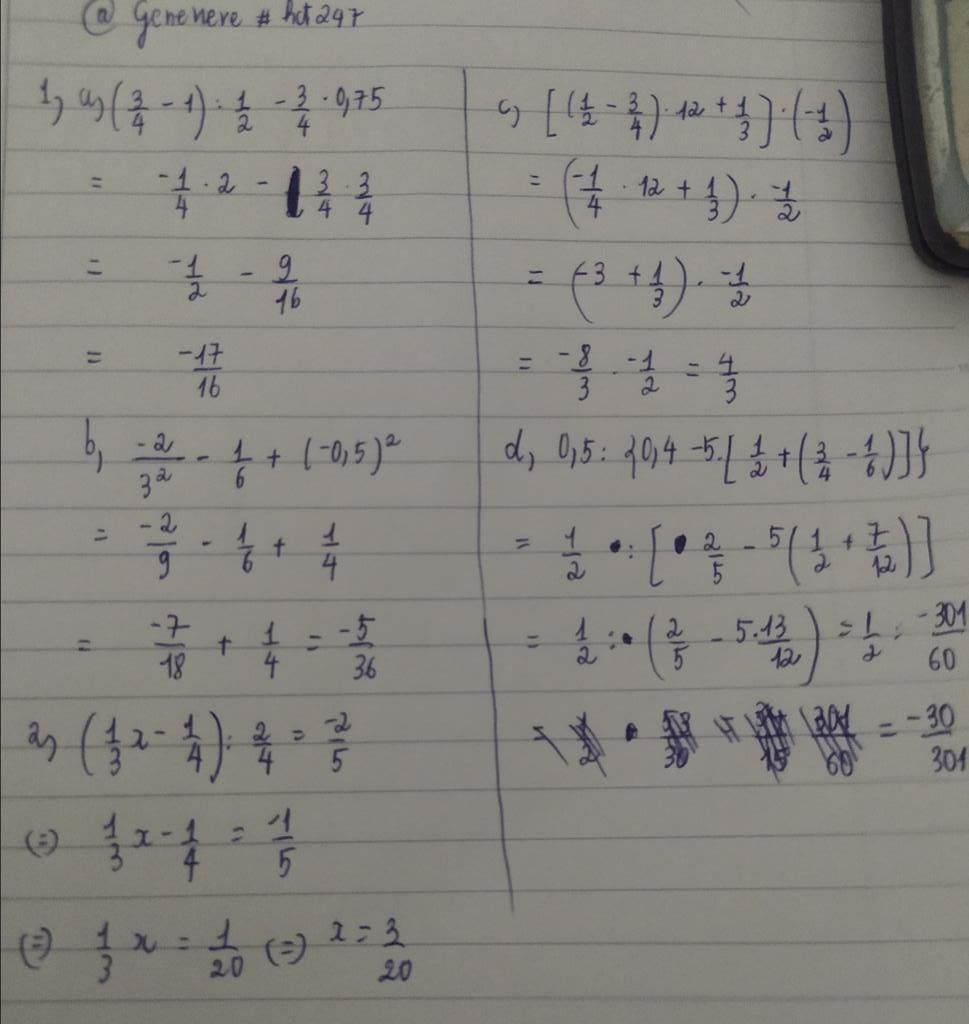 @ Genenere # hct247
1, a, (3/4 - 1) : 1/2 - 3/4 · 0,75
= -1/4 · 2 - 3/4 · 3/4
= -1/2 - 9/16
= -17/16
b, -2/3² - 1/6 + (-0,5)²
= -2/9 - 1/6 + 1/4
= -7/18 + 1/4 = -5/36
2, (1/3 x - 1/4) : 2/4 = -2/5
(=) 1/3 x - 1/4 = -1/5
(=) 1/3 x = 1/20 (=) x = 3/20
c, [(1/2 - 3/4) · 12 + 1/3] · (-1/2)
= (-1/4 · 12 + 1/3) · -1/2
= (-3 + 1/3) · -1/2
= -8/3 · -1/2 = 4/3
d, 0,5 : {0,4 - 5 · [1/2 + (3/4 - 1/6)]}
= 1/2 : [2/5 - 5(1/2 + 7/12)]
= 1/2 : (2/5 - 5·13/12) = 1/2 : -301/60
= -30/301